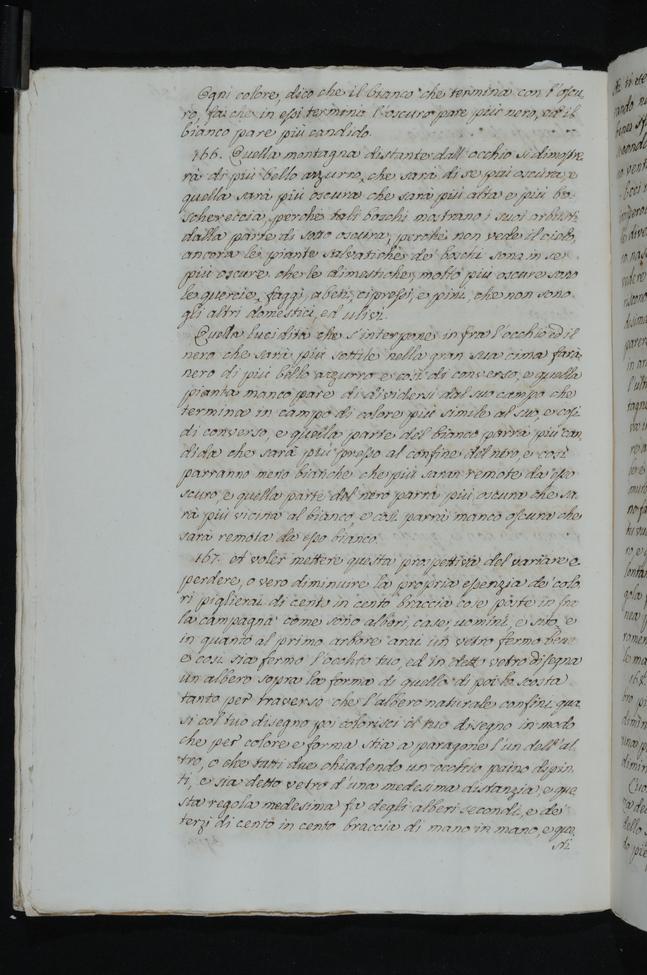 Ogni colore, dico che il bianco che termina con l'oscu-
ro, fa che in essi termini l'oscuro pare più nero, ed il
bianco pare più candido.
166. Quella montagna distante dall'occhio si dimostre
rà di più bello azzurro, che sarà di se più oscura, e
quella sarà più oscura che sarà più alta e più bo-
schereccia, perche tali boschi mostrano i suoi arbusti
dalla parte di sotto oscura, perche non vede il cielo,
ancora le piante salvatiche de boschi sono in se
più oscure che le dimestiche, molto più oscure sono
le quercie, faggi, abeti, cipressi, e pini, che non sono
gli altri domestici, ed ulivi.
Quella lucidità che s'interpone in fra l'occhio ed il
nero che sarà più sottile nella gran sua cima farà
nero di più bello azzurro e così di converso, e quella
pianta manco pare di dividersi dal suo campo che
termina in campo di colore più simile al suo, e così
di converso, e quella parte del bianco parrà più can
dida che sarà più presso al confine del nero, e così
parranno meno bianche che più saran remote da esso
scuro, e quella parte del nero parrà più oscura che sa-
rà più vicina al bianco, e così parrà manco oscura che
sarà remota da esso bianco.
167. et voler mettere questa prospettiva del variare e
perdere, o vero diminuire la propria essenzia de colo
ri piglierai di cento in cento braccia cose poste in fra
la campagna come sono alberi, case, uomini, e sito, e
in quanto al primo arbore arai un vetro fermo bene
e così sia fermo l'occhio tuo, ed in detto vetro disegna
un albero sopra la forma di quello di poi lo scosta
tanto per traverso che l'albero naturale confini qua
si col tuo disegno poi colorisci il tuo disegno in modo
che per colore e forma stia a paragone l'un dell'al
tro, o che tutti due chiudendo un occhio paino dipin-
ti, e sia detto vetro d'una medesima distanzia, e que
sta regola medesima fa degli alberi secondi, e de'
terzi di cento in cento braccia di mano in mano, e que
sti